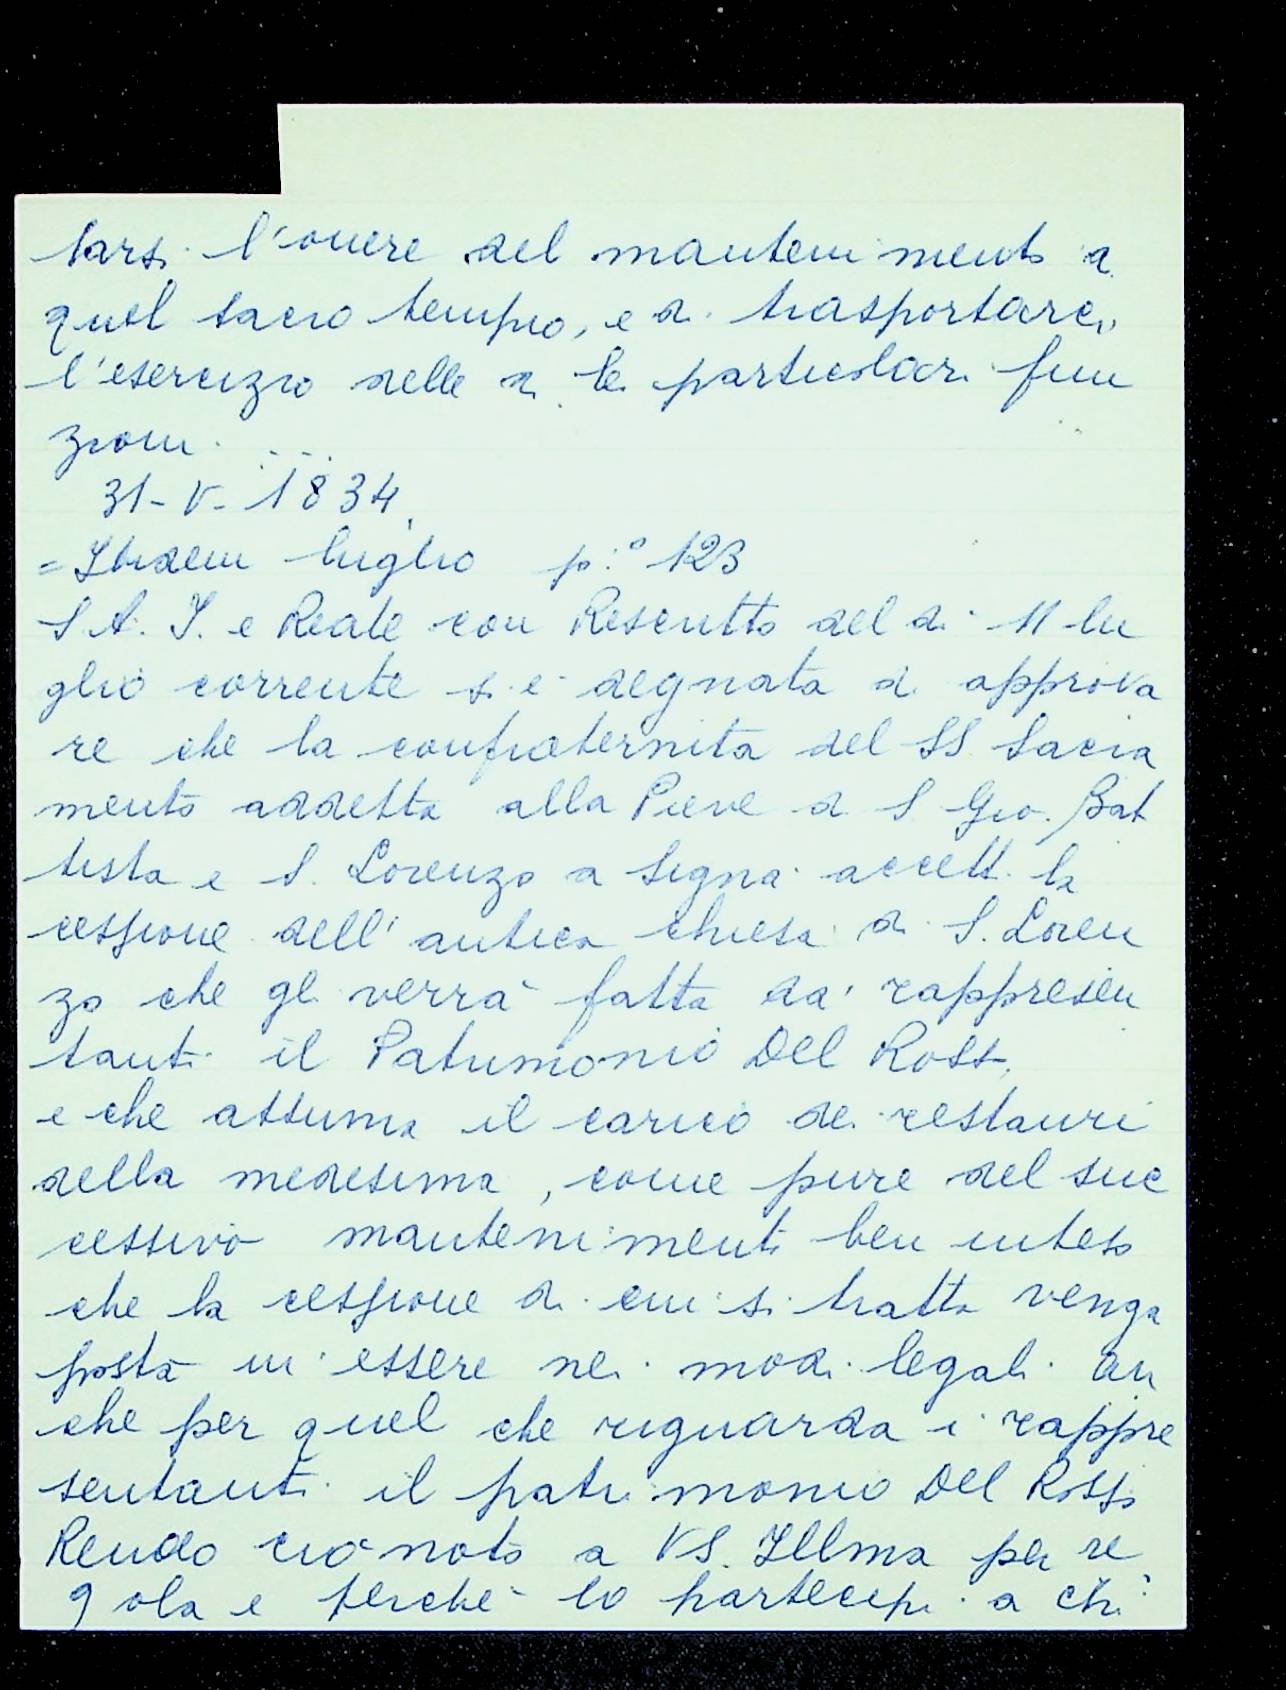 tarsi l'onere del mantenimento a
quel sacro tempio, e di trasportarci
l'esercizio delle di lei particolari fun
zioni. ...
31-V-1834.
= Ibidem luglio p.° 123
S A. I. e Reale con Rescritto del dì 11 lu
glio corrente si è degnata di approva
re che la confraternita del SS Sacra
mento addetta alla Pieve di S Gio. Bat
tista e S. Lorenzo a Signa accetti la
cessione dell'antica chiesa di S. Loren
zo che gli verrà fatta da' rappresen
tanti il Patrimonio Del Rosso,
e che assuma il carico dei restauri
della medesima, come pure del suc
cessivo mantenimento ben inteso
che la cessione di cui si tratta venga
posta in essere nei modi legali an
che per quel che riguarda i rappre
sentanti il patrimonio Del Rosso
Rendo ciò noto a VS. Illma per re
gola e perché lo partecipi a chi